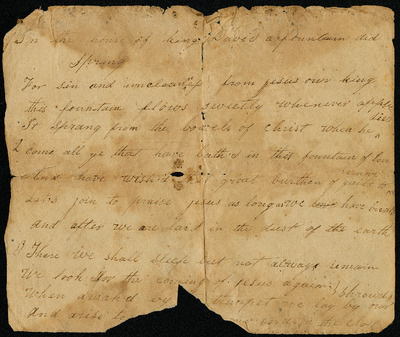 In the house of king David a fountain did
sprung
For sin and uncleanness from jesus our king
this fountain flows sweetly whenever applied
It sprang from the bowels of christ when he
2 come all ye that have bathed in this fountain of
have great burthen of guilt
let's join to praise jesus as long as we have breath
and after we are laid in the dust of the earth
3 There we shall sleep but not always remain
We look for the coming of jesus again
When by trumpet we lay by our shrouds
And rise to the